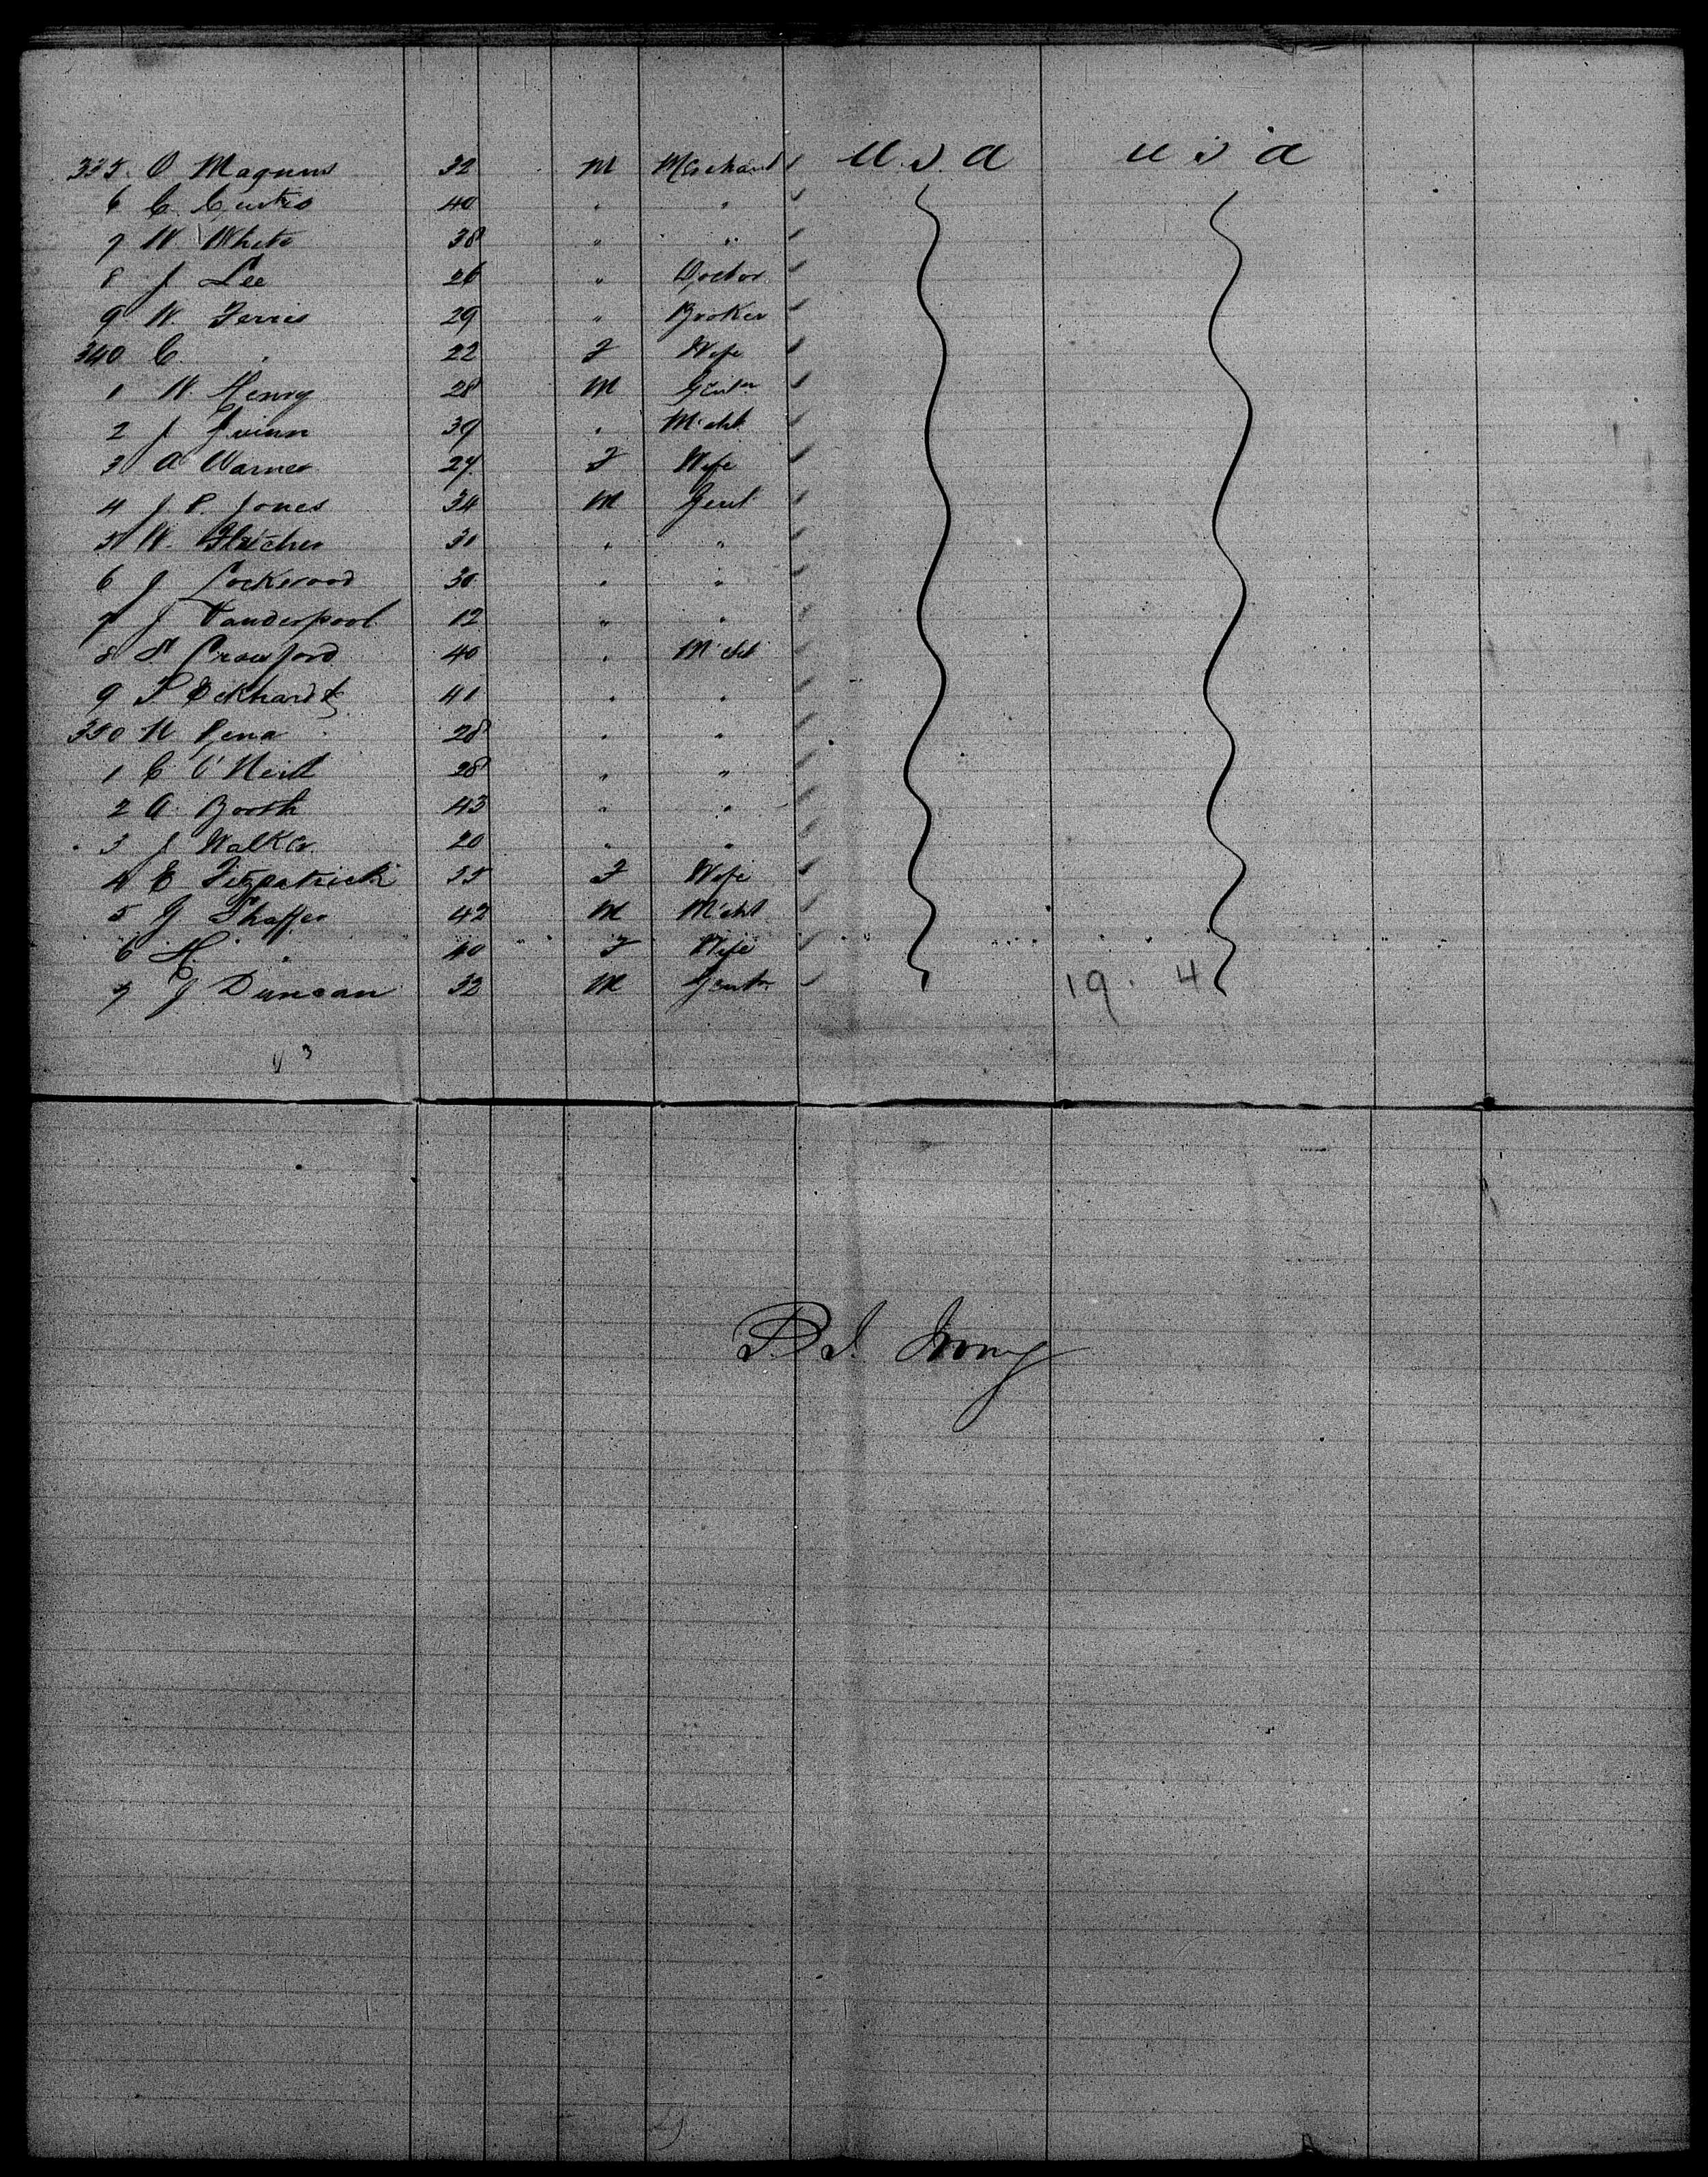 335. O Magnus 32 M Merchant U.S.A U S A
6 C. Curtis 40 " "
7 W. White 38 " "
8 J Lee 26 " Doctor
9 W. Ferris 29 " Broker
340 C. " 22 F Wife
1 W. Henry 28 M Gentn
2 J Quinn 39 " Mcht
3 A Warner 27 F Wife
4 J P. Jones 34 M Gent
5 W. Fletcher 31 " "
6 J Lockwood 30 " "
7 J Vanderpool 12 " "
8 S Crawford 40 " Mcht
9 Eckhardt 41 " "
350 N Pena 28 " "
1 C O'Neill 28 " "
2 A. Booth 43 " "
3 J Walker 20 " "
4 E Fitzpatrick 35 F Wife
5 J Shaffer 42 M Mcht
6 H. " 40 F Wife
7 J Duncan 32 M Gentn 19. 4